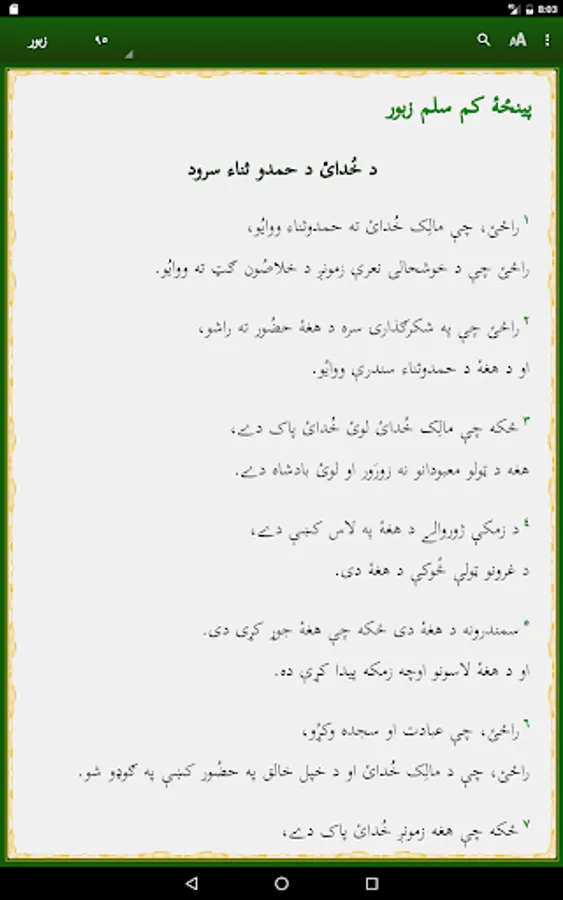 8:03
زبور ۹۵
AA
پينځۀ کم سلم زبور
د خُدائ د حمدو ثناء سرود
۱ راځئ، چې مالِک خُدائ ته حمدوثناء ووايُو،
راځئ چې د خوشحالۍ نعرې زمونږ د خلاصُون ګټ ته ووايُو.
۲ راځئ چې په شکرګذارۍ سره د هغۀ حضُور ته راشو،
او د هغۀ د حمدوثناء سندرې ووايُو.
۳ ځکه چې مالِک خُدائ لوئ خُدائ پاک دے،
هغه د ټولو معبودانو نه زورَور او لوئ بادشاه دے.
۴ د زمکې ژوروالے د هغۀ په لاس کښې دے،
د غرونو ټولې څُوکې د هغۀ دى.
۵ سمندرونه د هغۀ دى ځکه چې هغۀ جوړ کړى دى.
او د هغۀ لاسونو اوچه زمکه پيدا کړې ده.
۶ راځئ، چې عبادت او سجده وکړُو،
راځئ، چې د مالِک خُدائ او د خپل خالق په حضُور کښې په ګوډو شو.
۷ ځکه چې هغه زمونږ خُدائ پاک دے،